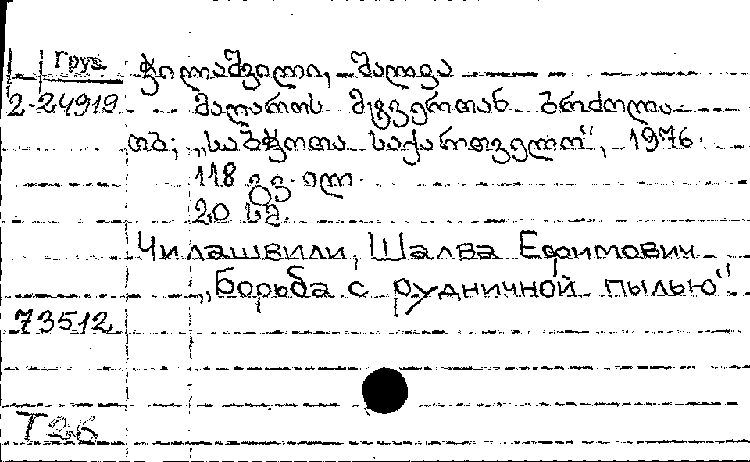 Груз
ჭილაშვილი, შალვა
2-24919 მაღაროს მტვერთან ბრძოლა
თბ; „საბჭოთა საქართველო“, 1976.
118 გვ. ილ.
20 სმ.
Чилашвили, Шалва Ефимович
„Борьба с рудничной пылью“
73512
T26